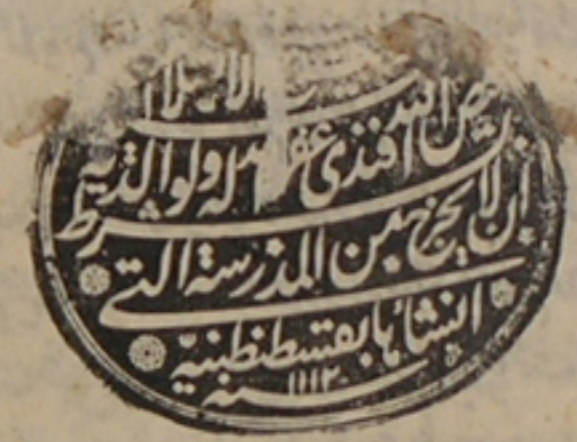 الاسلا
يض الله افندى غفر له ولوالديه
بشرط
ان لا يخرج من المدرسة التى
انشأها بقسطنطينية
سنه ١١١٢